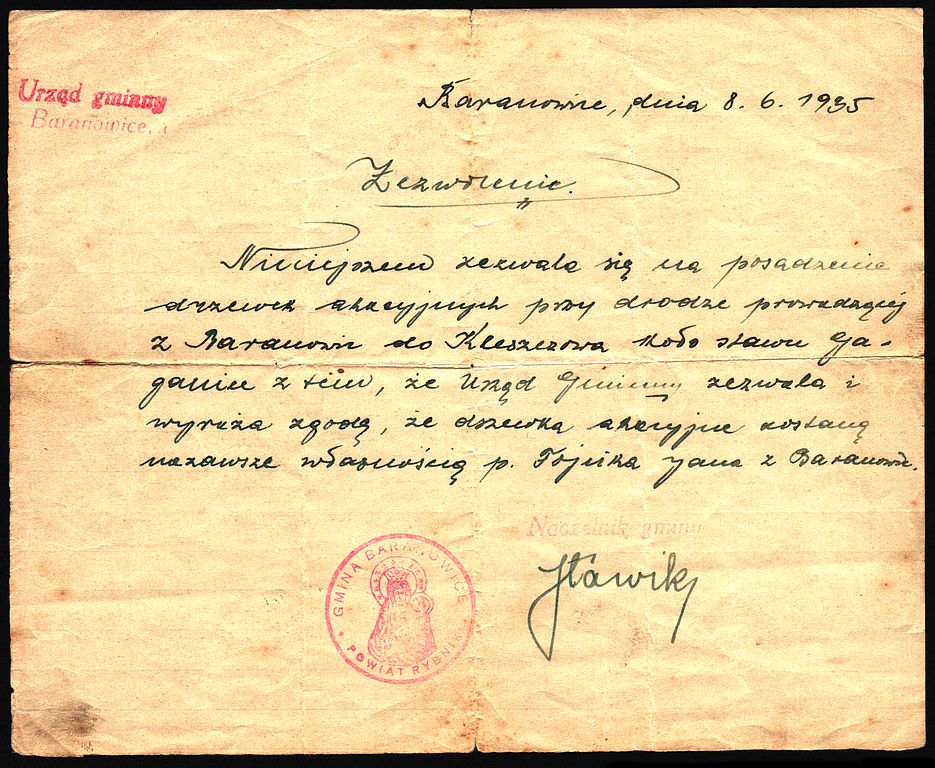 Urząd gminny
Baranowice,
Baranowice, dnia 8. 6. 1935
Zezwolenie.
Niniejszem zezwala się na posadzenie
drzewek akacyjnych przy drodze prowadzącej
z Baranowic do Kleszczowa koło stawu Ga-
ganiec z tem, że Urząd Gminny zezwala i
wyraża zgodę, że drzewka akacyjne zostaną
nazawsze własnością p. Tójuka Jana z Baranowic.
Naczelnik gminy
Stawik
GMINA BARANOWICE
* POWIAT RYBNIK *